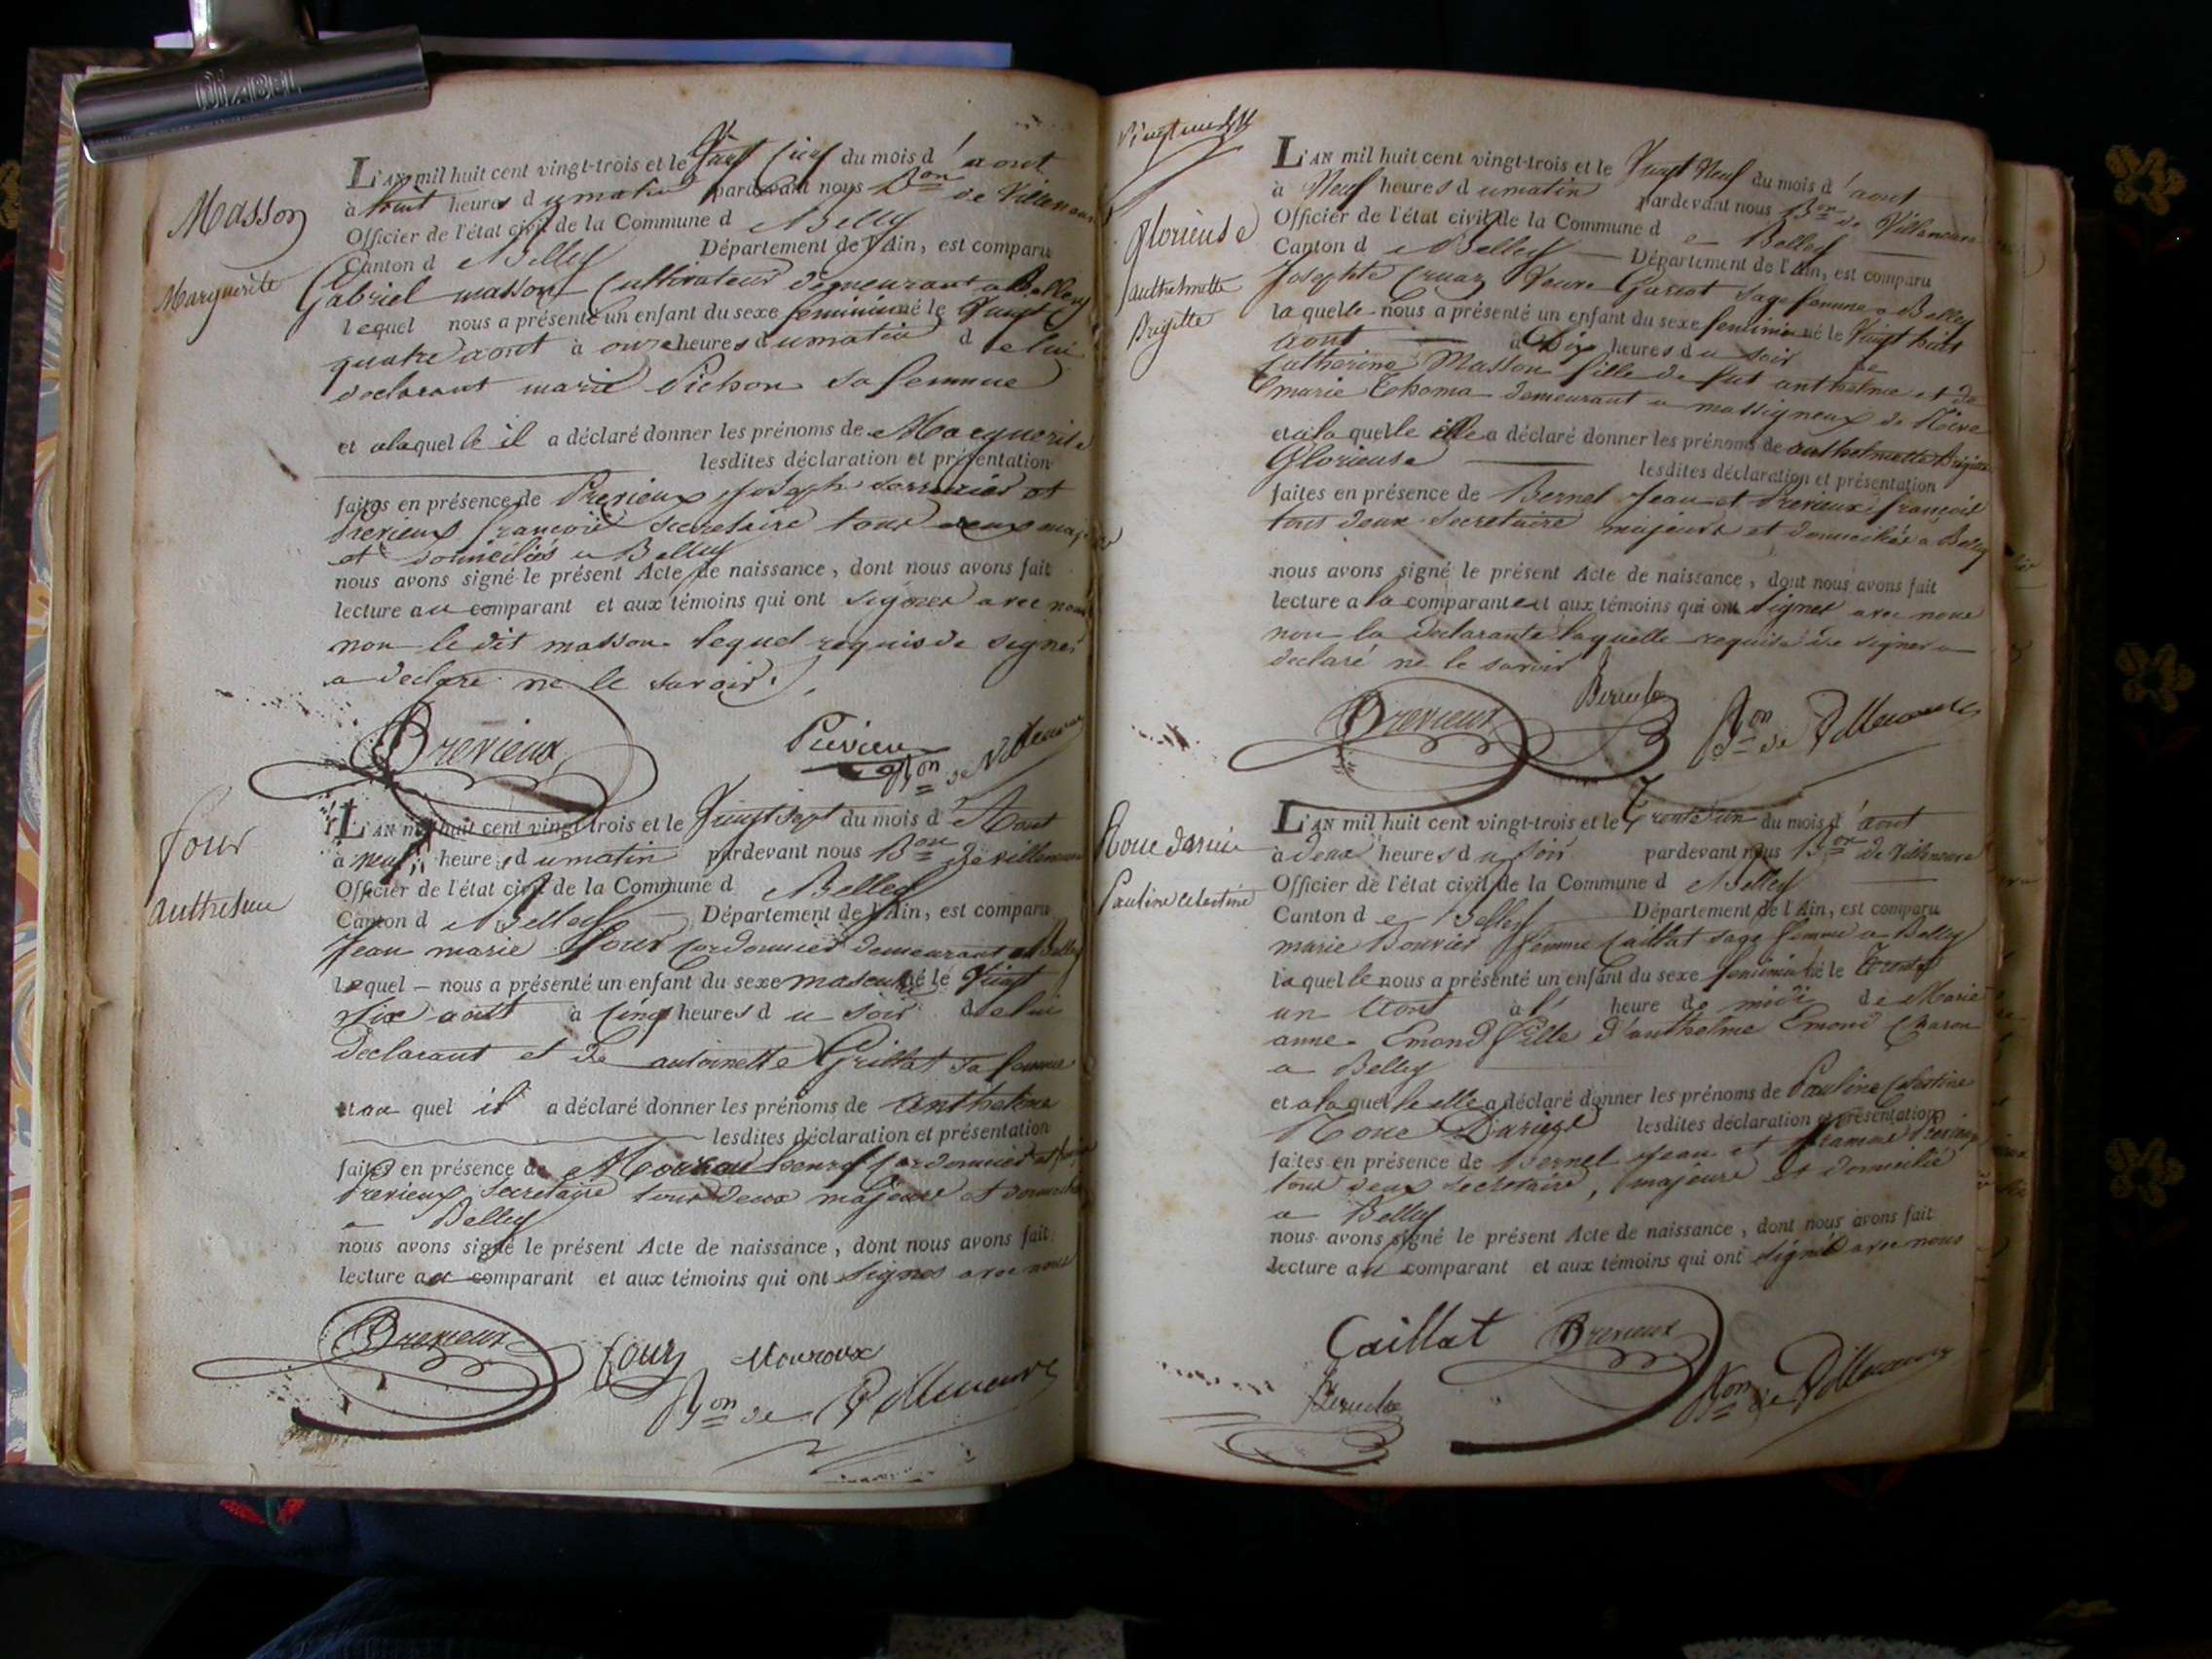 DIABEL
Masson
Marguerite
L'AN mil huit cent vingt-trois et le Vingt Cinq du mois d'aout
à huit heures du matin pardevant nous Bon de Villeneuve
Officier de l'état civil de la Commune de Belley
Canton de Belley Département de l'Ain, est comparu
Gabriel masson Cultivateur demeurant a Belley
lequel nous a présenté un enfant du sexe feminin né le Vingt
quatre aout à onze heures du matin de lui
declarant marie Pichon sa femme
et a laquelle il a déclaré donner les prénoms de Marguerite
lesdites déclaration et présentation
faites en présence de Prerieux Joseph serrurier et
Prerieux françois secretaire tous deux majeurs
et domiciliés a Belley
nous avons signé le présent Acte de naissance, dont nous avons fait
lecture au comparant et aux témoins qui ont signer avec nous
non le dit masson lequel requis de signer
a declare ne le savoir
Prerieux
Bon de Villeneuve
four
anthelme
L'AN mil huit cent vingt-trois et le Vingt sept du mois d'Aout
à neuf heures du matin pardevant nous Bon De villeneuve
Officier de l'état civil de la Commune de Belley
Canton de Belley Département de l'Ain, est comparu
Jean marie four Cordonnier demeurant a Belley
lequel nous a présenté un enfant du sexe masculin né le Vingt
six aout à cinq heures du soir de lui
declarant et de antoinette Grillat sa femme
et au quel il a déclaré donner les prénoms de anthelme
lesdites déclaration et présentation
faites en présence de cordonnier et
Prerieux secretaire tous deux majeurs et domiciliés
a Belley
nous avons signé le présent Acte de naissance, dont nous avons fait
lecture au comparant et aux témoins qui ont signés avec nous
Prerieux four Mouroux
Bon de Villeneuve
Glorieuse
anthelmette
Brigitte
L'AN mil huit cent vingt-trois et le Vingt Neuf du mois d'aout
à Neuf heures du matin pardevant nous Bon de Villeneuve
Officier de l'état civil de la Commune de Belley
Canton de Belley Département de l'Ain, est comparu
Josephte Cruaz Veuve sage femme a Belley
la quelle nous a présenté un enfant du sexe feminin né le Vingt huit
aout à Dix heures du soir de
Catherine Masson fille de fut anthelme et de
marie Thoma demeurant a massigneux de Rive
et a la quelle elle a déclaré donner les prénoms de anthelmette Brigitte
Glorieuse lesdites déclaration et présentation
faites en présence de Bernel Jean et Prerieux françois
tous deux secretaire majeurs et domiciliés a Belley
nous avons signé le présent Acte de naissance, dont nous avons fait
lecture a la comparante et aux témoins qui ont signer avec nous
non la declarante laquelle requise de signer a
declaré ne le savoir
Prerieux Bon de Villeneuve
Pauline celestine
L'AN mil huit cent vingt-trois et le Trente un du mois d'aout
à deux heures du soir pardevant nous Bon de Villeneuve
Officier de l'état civil de la Commune de Belley
Canton de Belley Département de l'Ain, est comparu
marie Bouvier femme Caillat sage femme a Belley
laquelle nous a présenté un enfant du sexe feminin né le Trente
un aout à l' heure de midi de Marie
anne Emond fille d'anthelme Emond Charon
a Belley
et a laquelle elle a déclaré donner les prénoms de Pauline Celestine
lesdites déclaration et présentation
faites en présence de Bernel Jean et Prerieux
tous deux secretaire, majeurs et domicilié
a Belley
nous avons signé le présent Acte de naissance, dont nous avons fait
lecture au comparant et aux témoins qui ont signé avec nous
Caillat Prerieux
Bon de Villeneuve